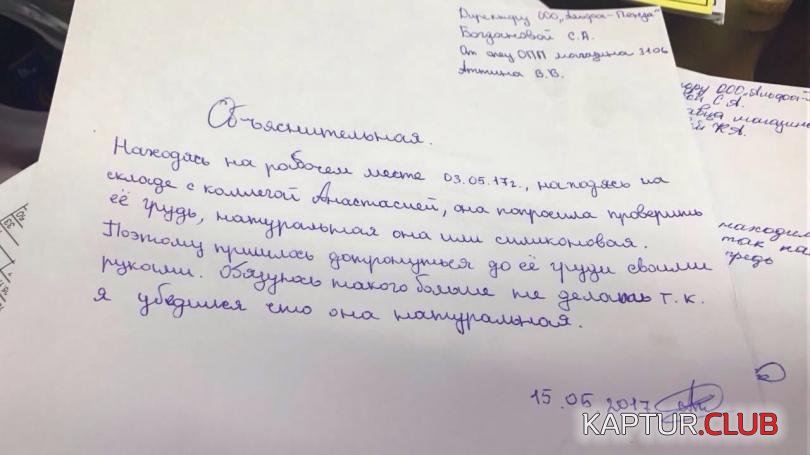 Директору ООО „Альфа-Победа"
Богдановой С.А.
От спец ОПП магазина 3106
Аттина В.В.
Объяснительная.
Находясь на робочем месте 03.05.17г., находясь на
складе с коллегой Анастасией, она попросила проверить
её грудь, натуральная она или силиконовая.
Поэтому пришлось дотронуться до её груди своими
руками. Обязуюсь такого больше не делать т.к.
я убедился что она натуральная.
15.05.2017
ООО „Альфа-
С.А.
магазина
находи
так на
KAPTUR.CLUB